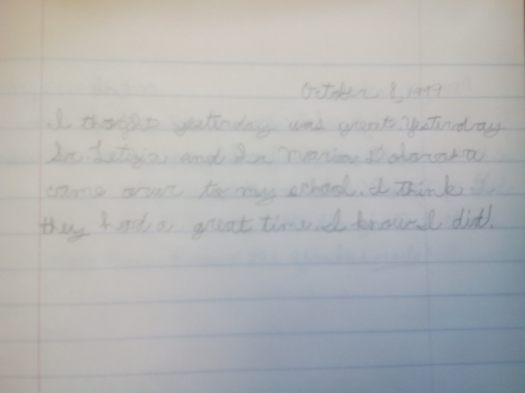 October 8, 1997
I thoght yesterday was great. Yesterday
Sr. Letizia and Sr Maria Dolorosa
came over to my school. I think
they had a great time. I know I did!